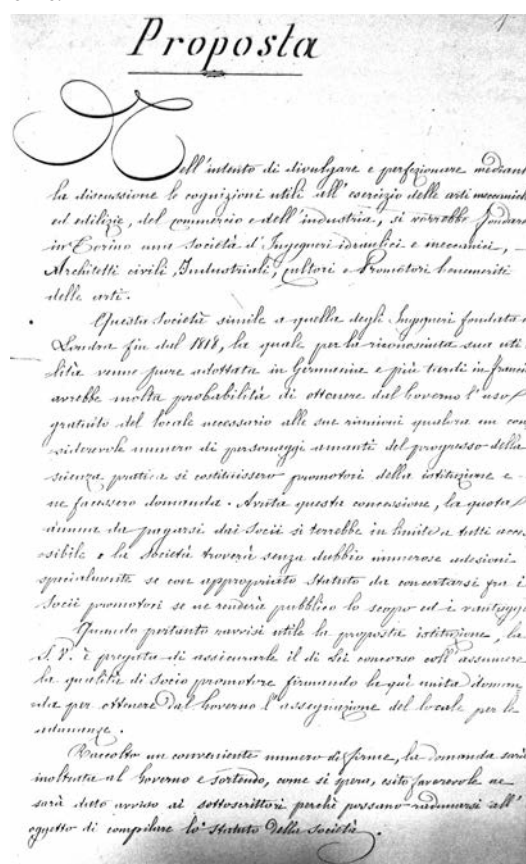 Proposta
Nell'intento di divulgare e perfezionare mediant
la discussione le cognizioni utili all'esercizio delle arti meccaniche
ed edilizie, del commercio e dell'industria, si vorrebbe fondare
in Torino una Società d'Ingegneri idraulici e meccanici, –
Architetti civili, Industriali, cultori e Promotori benemeriti
delle arti.
Questa Società simile a quella degli Ingegneri fondata a
Londra fin dal 1818, la quale per la riconosciuta sua uti
lità venne pure adottata in Germania e più tardi in Francia
avrebbe molta probabilità di ottenere dal Governo l'uso
gratuito del locale necessario alle sue riunioni qualora un con
siderevole numero di personaggi amanti del progresso della
scienza pratica si costituissero promotori della istituzione e
ne facessero domanda. Avuta questa concessione, la quota
annua da pagarsi dai Socii si terrebbe in limite a tutti acces
sibile e la Società troverà senza dubbio numerose adesioni
specialmente se con appropriato Statuto da concertarsi fra i
Socii promotori se ne renderà pubblico lo scopo ed i vantaggi
Quando pertanto ravvisi utile la proposta istituzione, la
S. V. è pregata di assicurarle il di Lei concorso coll'assumere
la qualità di Socio promotore firmando la qui unita doman
da per ottenere dal Governo l'assegnazione del locale per le
adunanze.
Raccolto un conveniente numero di firme, la domanda sarà
inoltrata al Governo e sortendo, come si spera, esito favorevole ne
sarà dato avviso ai sottoscrittori perchè possano radunarsi all'
oggetto di compilare lo Statuto della Società.